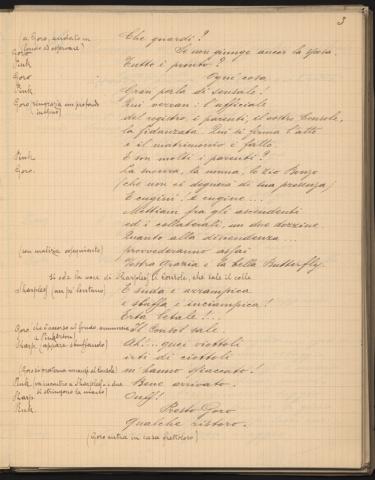 3
(a Goro, andato in fondo ad osservare) Che guardi?
Goro Se non giunge ancor la sposa.
Pink Tutto è pronto?
Goro Ogni cosa
Pink Gran perla di sensale!
Goro ringrazia con profondo inchino Qui verran: l'ufficiale
del registro, i parenti, il vostro Console,
la fidanzata. Qui si firma l'atto
e il matrimonio è fatto.
Pink E son molti i parenti?
Goro. La suocera, la nonna, lo zio Bonzo
(che non ci degnerà di sua presenza)
E cugini, e cugine...
Mettiam fra gli ascendenti
ed i collaterali, un due dozzine.
Quanto alla discendenza...
(con malizia ossequiente) provvederanno assai
Vostra Grazia e la bella Butterfly
si ode la voce di Sharpless, il console, che sale il colle
Sharpless (un po' lontano) E suda e arrampica
e sbuffa e inciampica!
Erto letale!...
Goro che è accorso al fondo, annuncia a Pinkerton: Il Consol sale
Sharp. (appare sbuffando) Ah!... quei viottoli
irti di ciottoli
(Goro si prosterna innanzi al Console) m'hanno sfiaccato!
Pink va incontro a Sharpless, i due si stringono la mano) Bene arrivato.
Sharp. Ouff!
Pink Presto Goro
qualche ristoro.
(Goro entra in casa frettoloso)